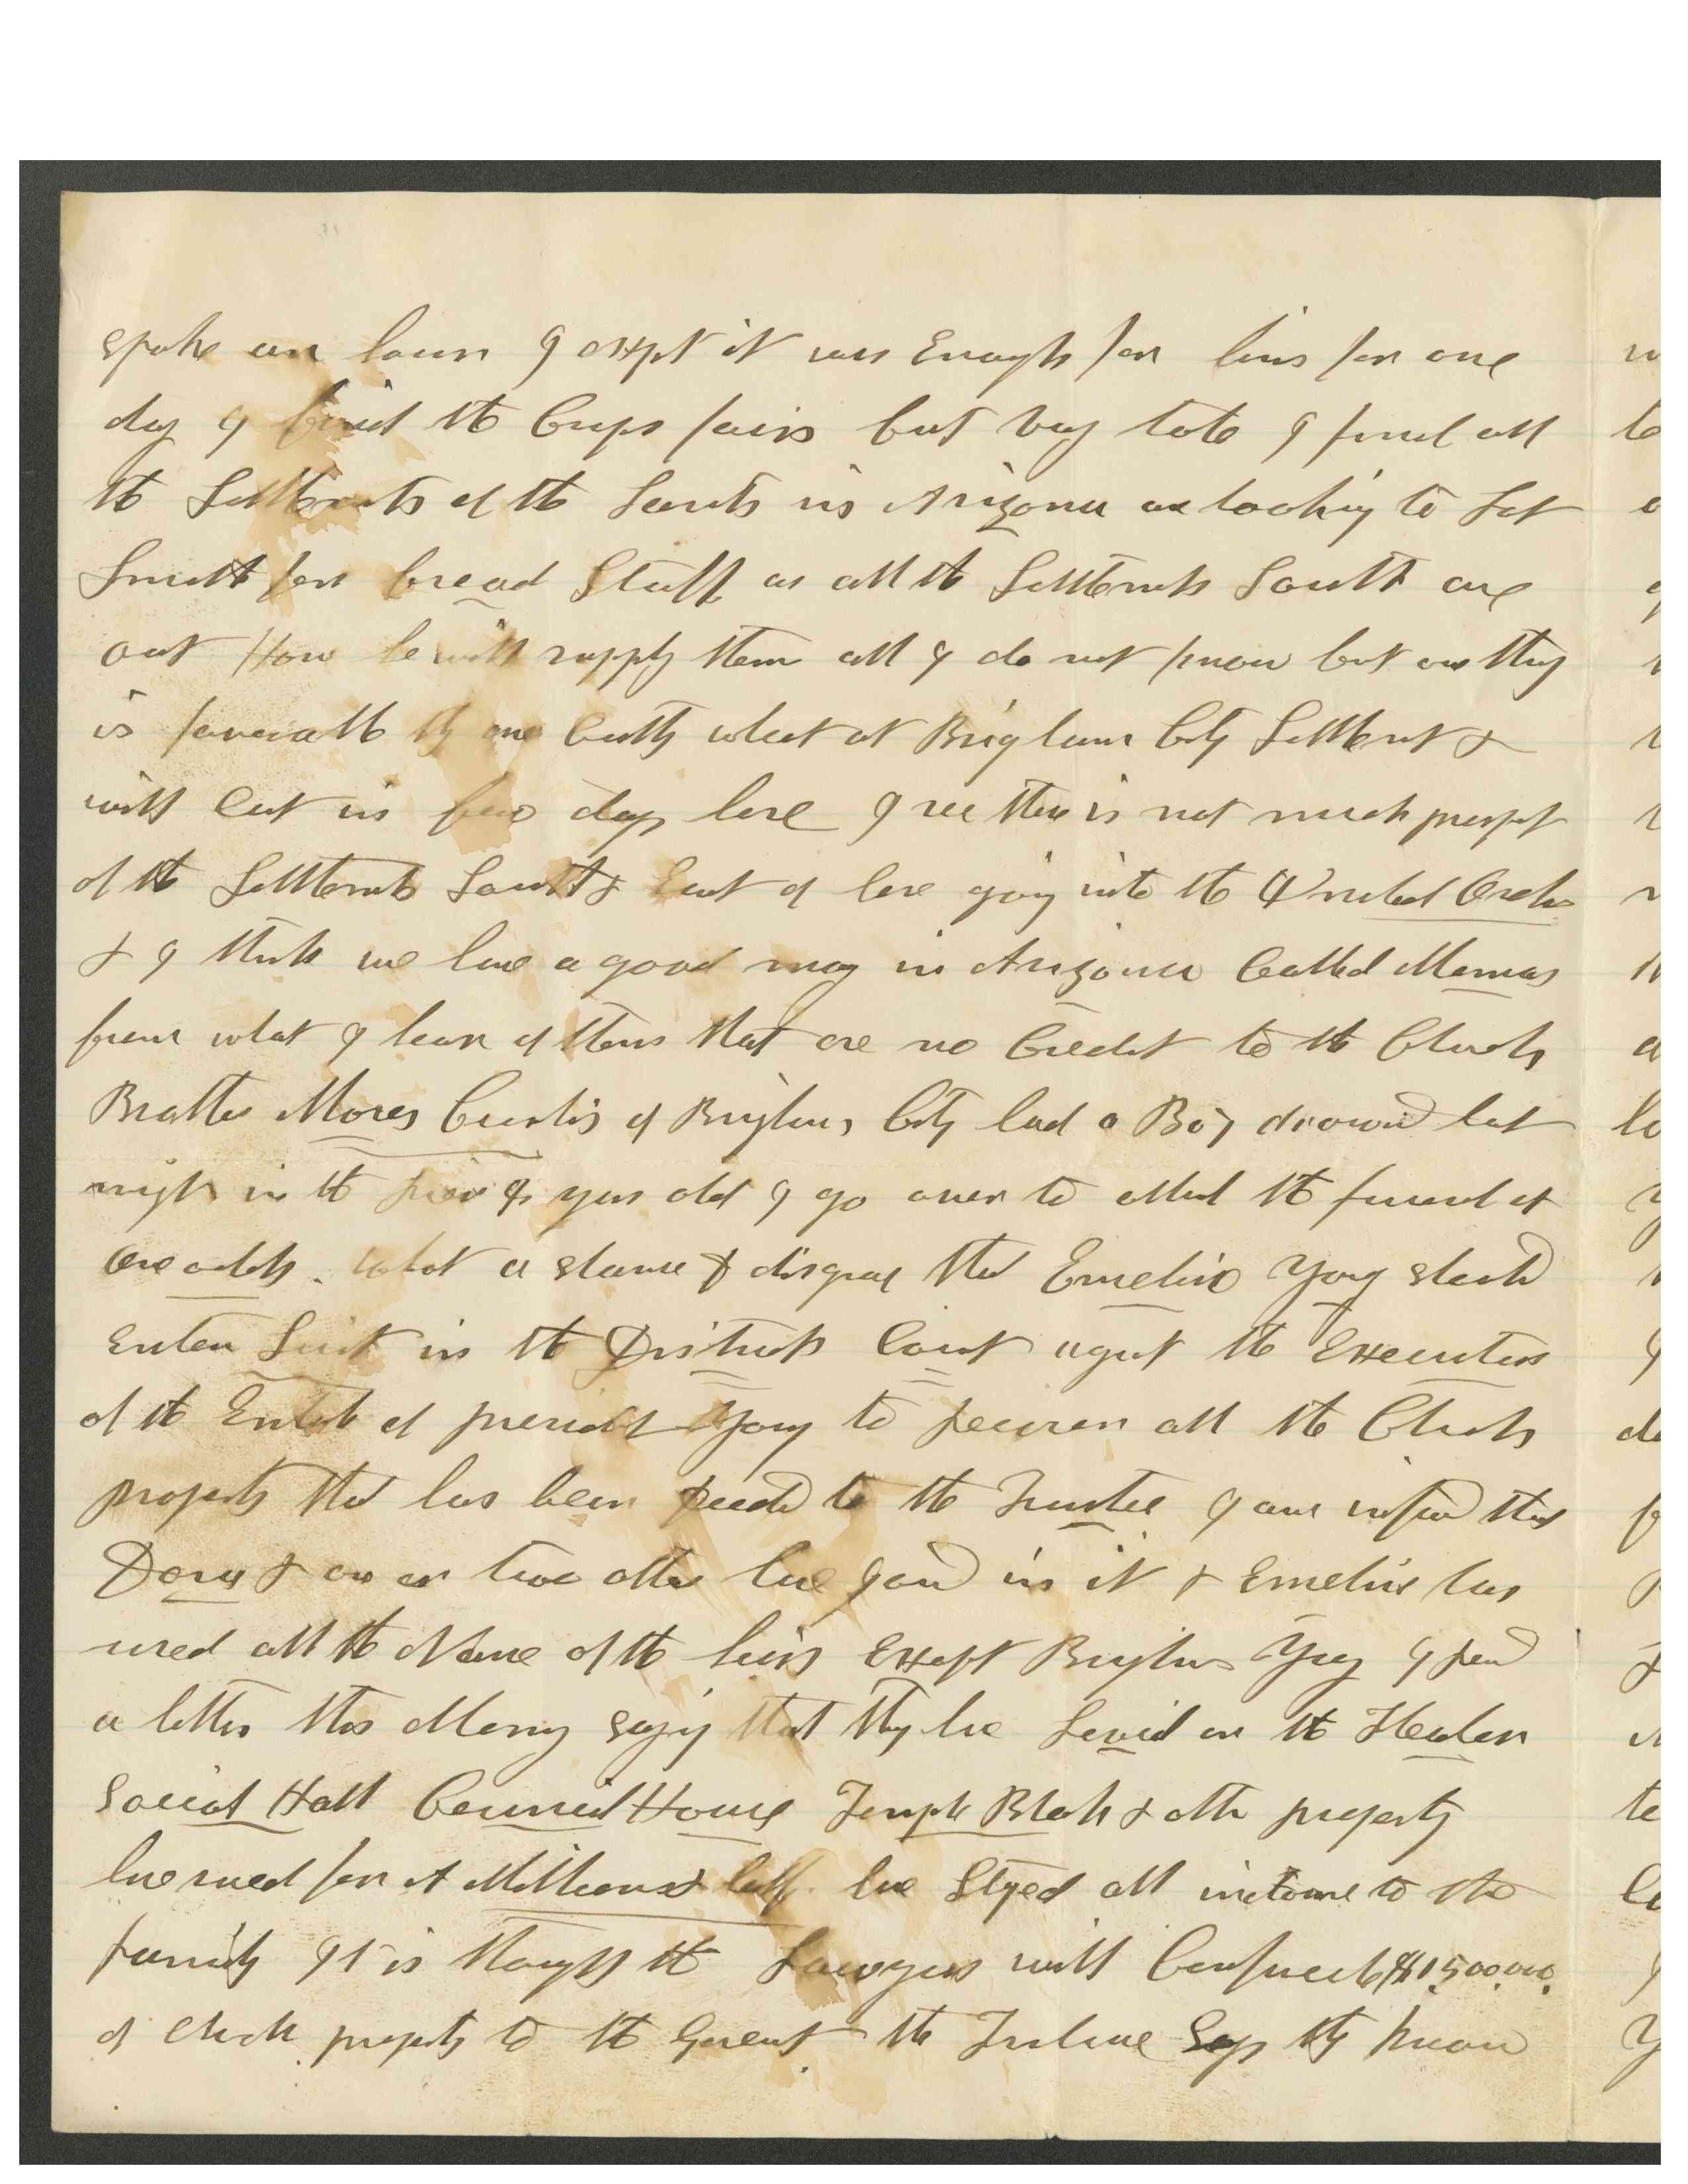 spoke an hour I exspt it was Enough for him for one
day I find the Crops fair but vey late I find all
the Settlements of the Saints in Arizona are looking to Lot
Smith for bread Stuff as all the Settlements South are
out How he will supply them all I do not know but one thing
is favorable they are Cutting wheat at Brigham City Settlement &
will Cut in few days here I see there is not much prospt
of the Settlements South & East of here going into the United Order
& I think we have a good may in Arizona Called Mormons
from what I hear of them that are no Credit to the Church
Brother Moses Curtis of Brigham City had a Boy drownd last
night in the years old I go over to attend the funeral at
oclok. What a shame & disgrace that Emeline Yong should
Enter Suit in the District Court against the Executors
of the Estate of president Yong to recover all the Church
property that has been deeded to the Trustee I am informd that
Dora & one or two others have joind in it & Emeline has
used all the Name of the heirs Except Brigham Yong I recd
a letter this Morning saying that they have Levied on the Theater
Social Hall Council House Temple Block & other property
have sued for A Million & half. have Stoped all income to the
family It is thought the Lawyers will Confiscate $1,500,000.
of Church property to the Govermt the Tribune Says they know